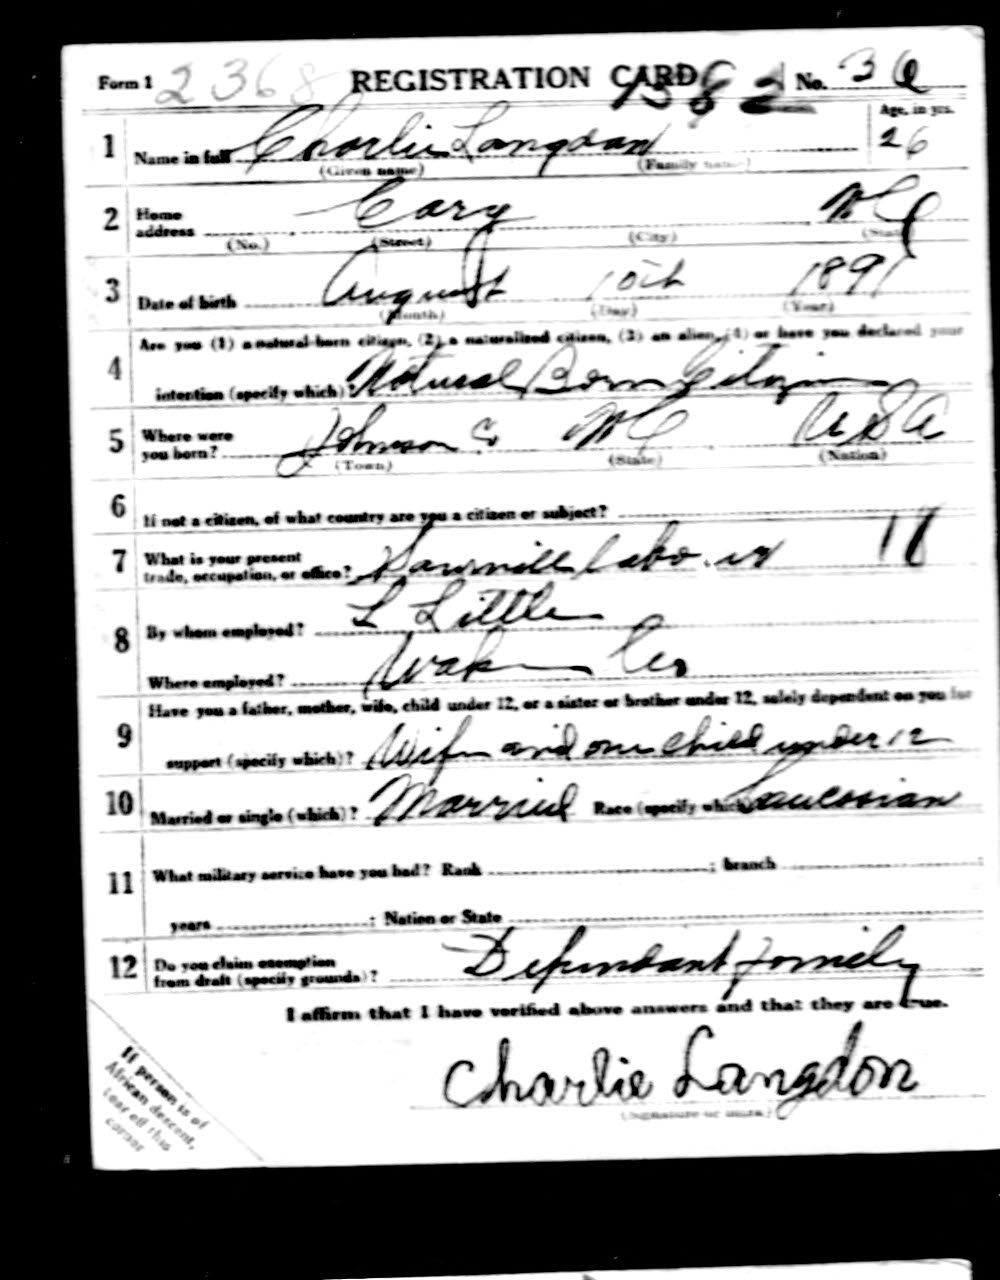 Form 1 2368 REGISTRATION CARD No. 36
1 Name in full Charlie Langdon Age, in yrs. 26
(Given name) (Family name)
2 Home address Cary N C
(No.) (Street) (City) (State)
3 Date of birth August 10th 1891
(Month) (Day) (Year)
4 Are you (1) a natural-born citizen, (2) a naturalized citizen, (3) an alien, (4) or have you declared your
intention (specify which)? Natural Born Citizen
5 Where were you born? Johnson Co N C U S A
(Town) (State) (Nation)
6 If not a citizen, of what country are you a citizen or subject?
7 What is your present trade, occupation, or office? Sawmill laborer
8 By whom employed? L Little
Where employed? Wake Co
9 Have you a father, mother, wife, child under 12, or a sister or brother under 12, solely dependent on you for
support (specify which)? Wife and one child under 12
10 Married or single (which)? Married Race (specify which)? Caucasian
11 What military service have you had? Rank ; branch ;
years ; Nation or State
12 Do you claim exemption from draft (specify grounds)? Dependant family
I affirm that I have verified above answers and that they are true.
Charlie Langdon
(Signature or mark)
If person is of
African descent,
tear off this
corner